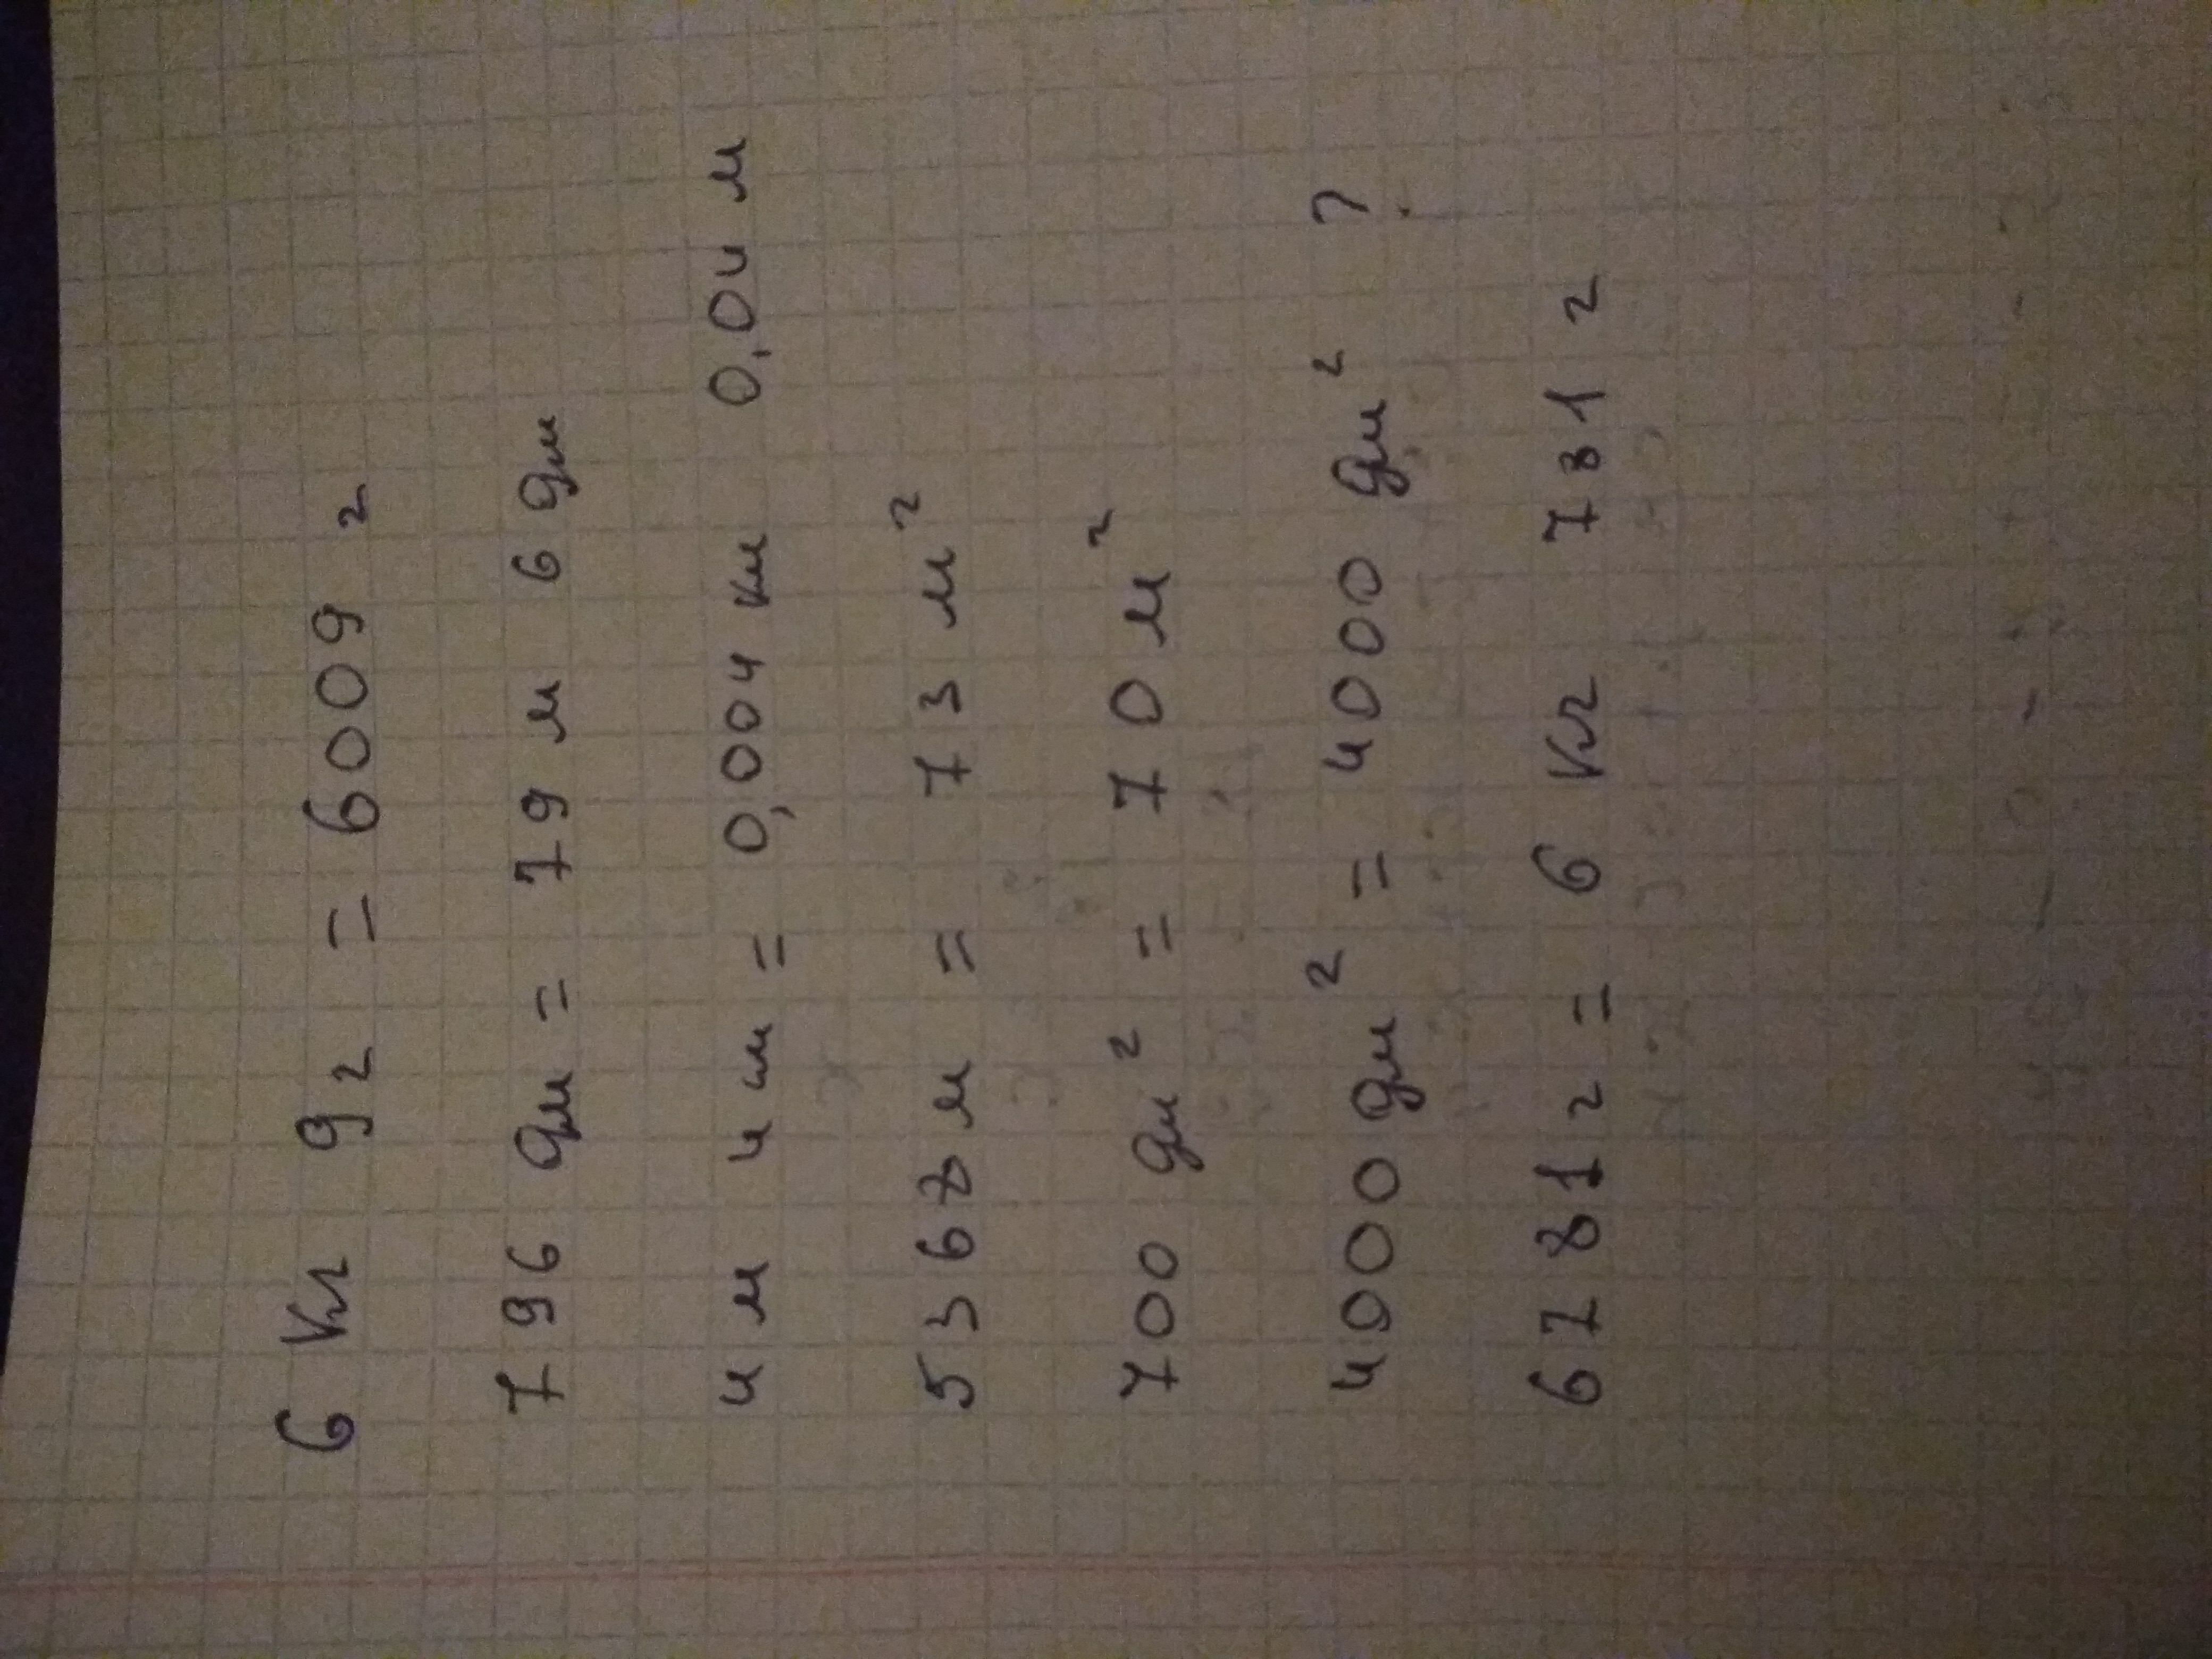 6 кг 9 г = 6009 г
796 дм = 79 м 6 дм
4 м 4 см = 0,004 км 0,04 м
5368 м = 73 м²
700 дм² = 70 м²
4000 дм² = 4000 дм² ?
6781 г = 6 кг 781 г